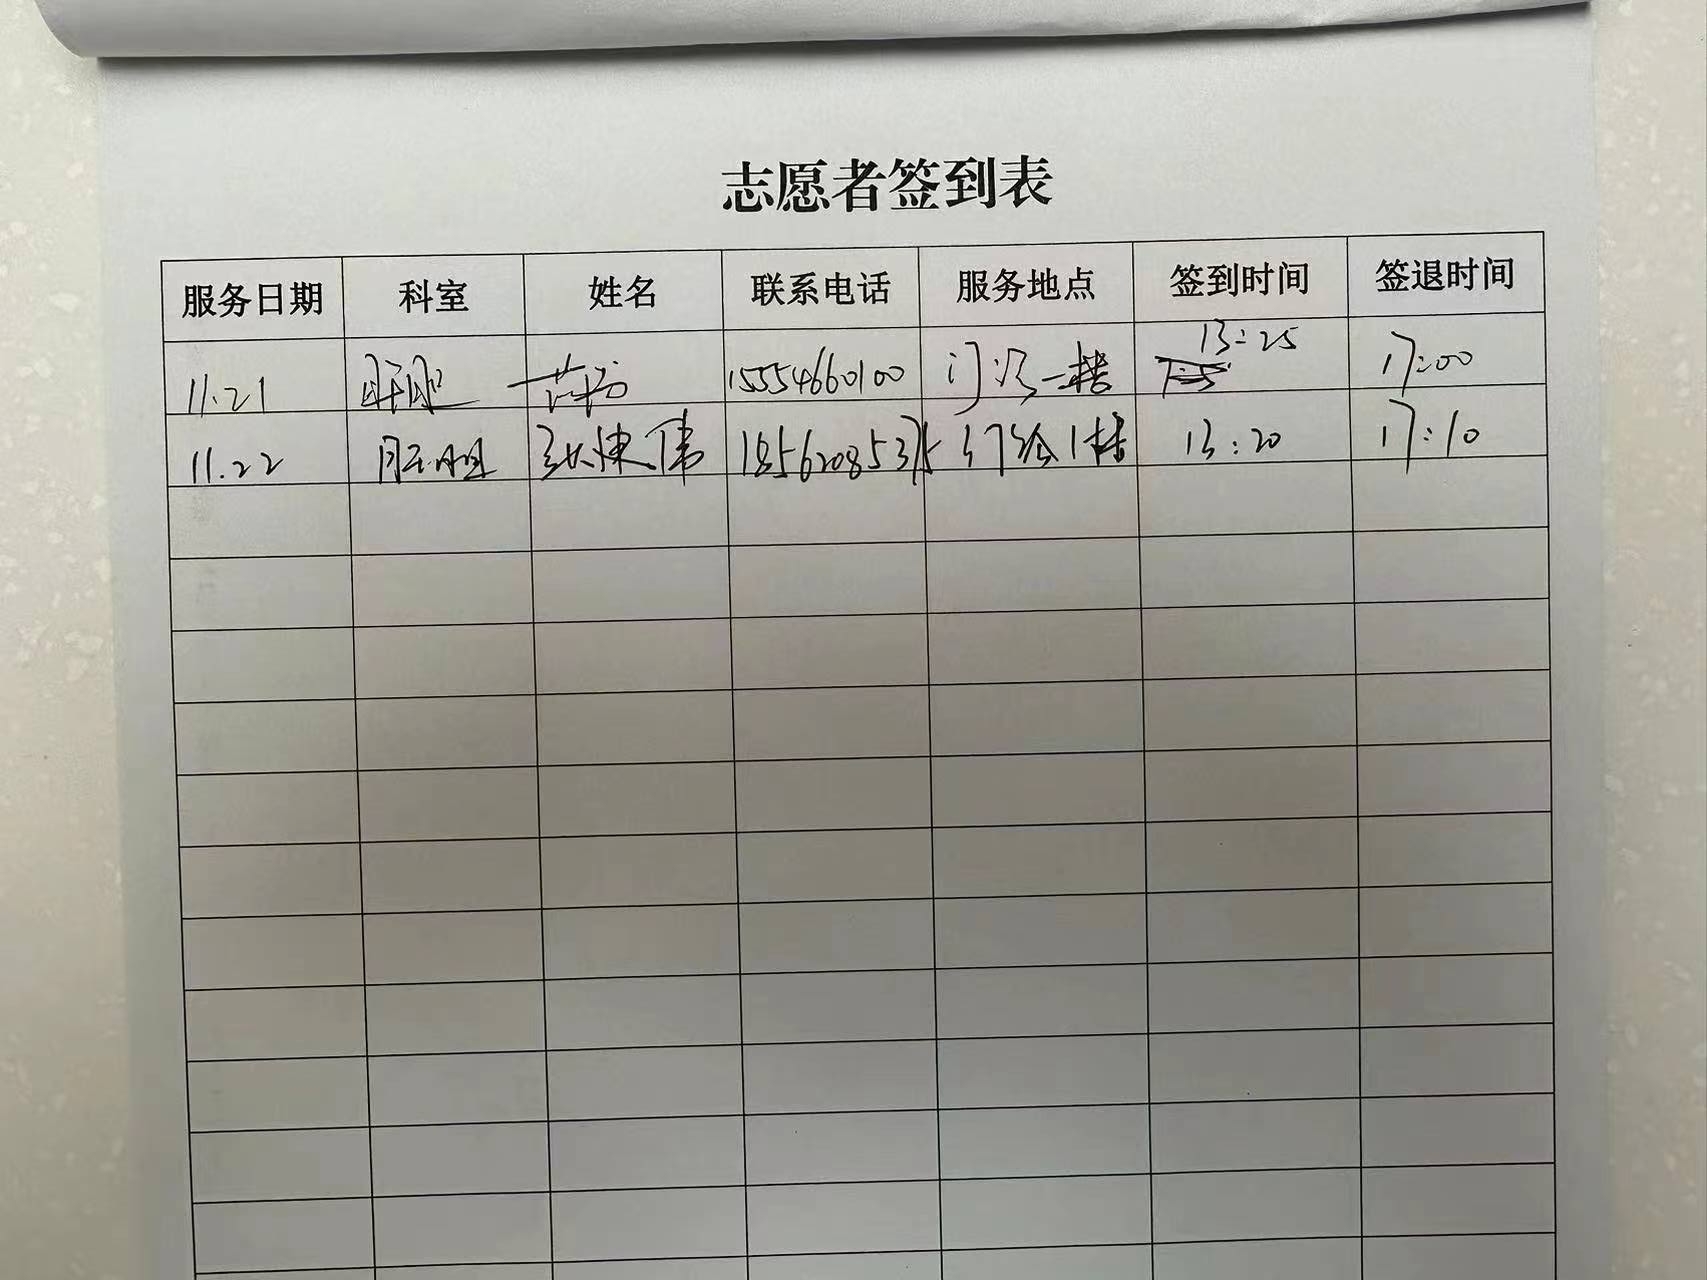 志愿者签到表
服务日期 科室 姓名 联系电话 服务地点 签到时间 签退时间
11.21 肝胆 15554660100 门诊一楼 13:25 17:00
11.22 肝胆 张健伟 18562085375 门诊1楼 13:20 17:10